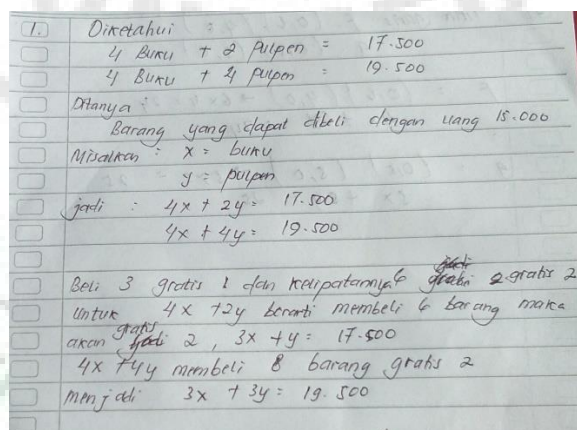 1. Diketahui
4 Buku + 2 Pulpen = 17.500
4 Buku + 4 pulpen = 19.500
Ditanya :
Barang yang dapat dibeli dengan uang 15.000
Misalkan : x = buku
y = pulpen
jadi : 4x + 2y = 17.500
4x + 4y = 19.500
Beli 3 gratis 1 dan kelipatannya 6 2 gratis 2
untuk 4x + 2y berarti membeli 6 barang maka
akan gratis 2, 3x + y = 17.500
4x + 4y membeli 8 barang gratis 2
menjadi 3x + 3y = 19.500